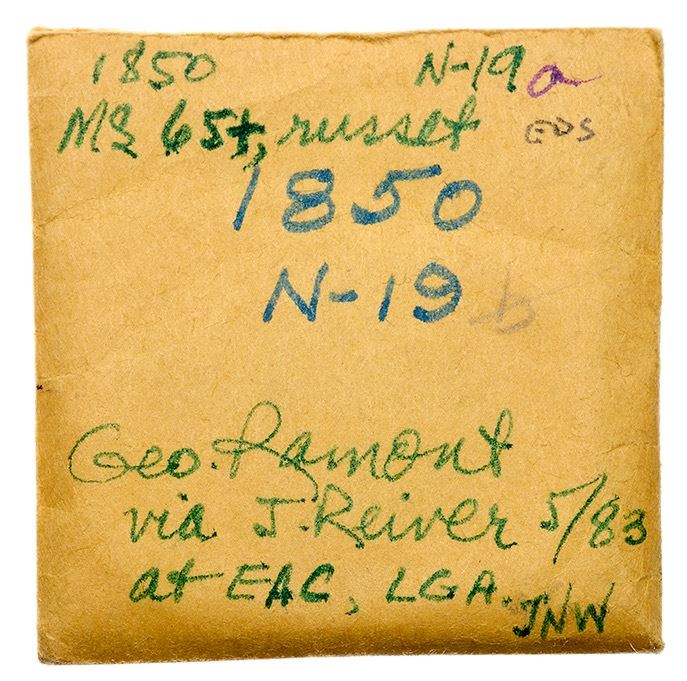 1850 N-19 a
MS 65+, russet EDS
1850
N-19 b
Geo. Ramont
via J. Reiver 5/83
at EAC, LGA. JNW